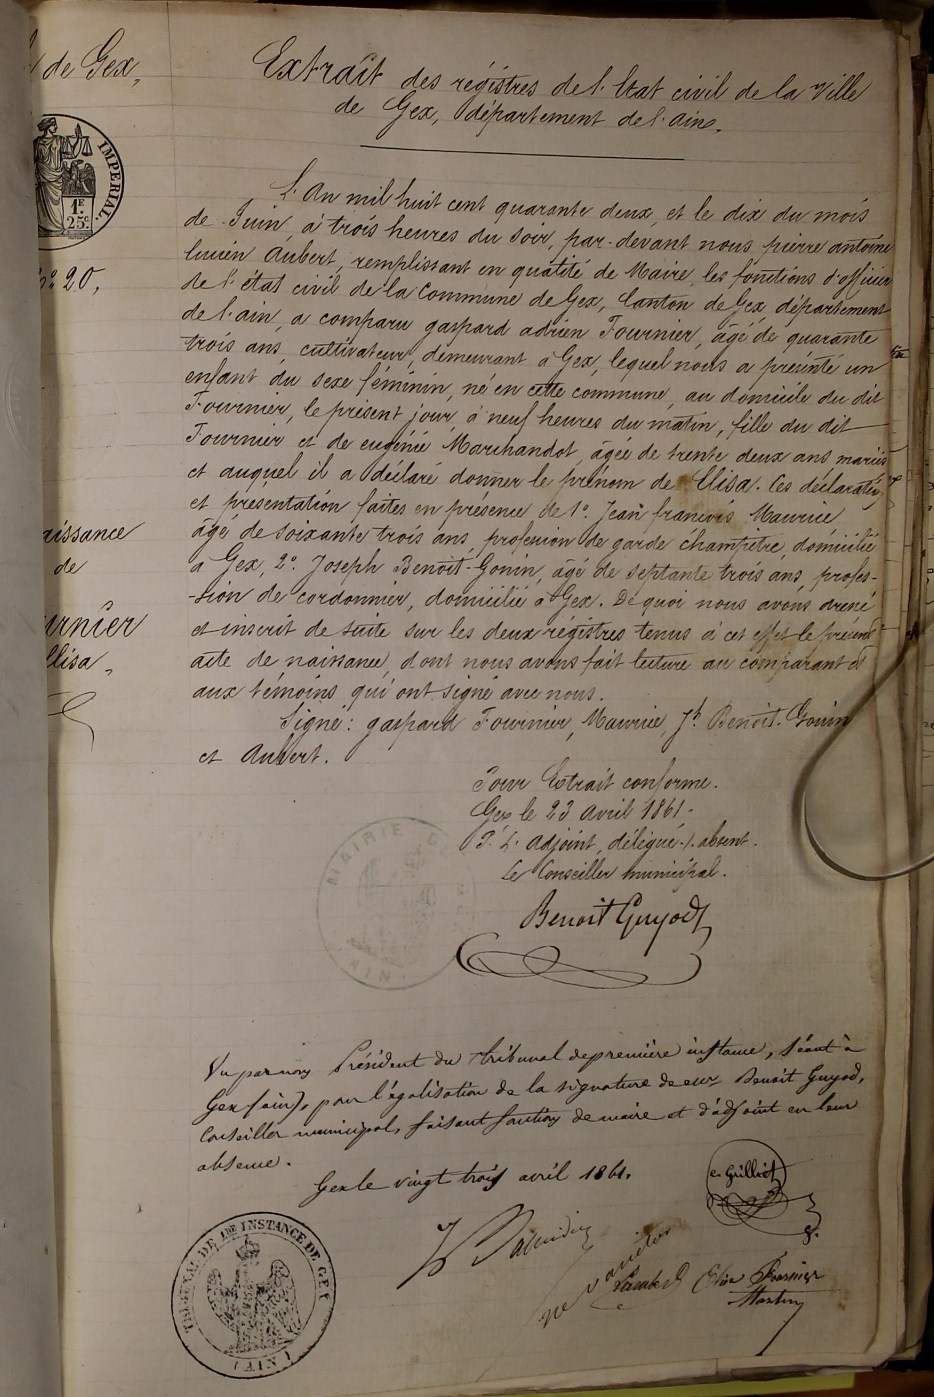 de Gex,
IMPERIAL.
1F
25c
No 20,
aissance
de
urnier
Elisa.
Extrait des régistres de l'Etat civil de la Ville
de Gex, département de l'ain.
L'An mil huit cent quarante deux, et le dix du mois
de Juin, à trois heures du soir, par-devant nous pierre antoine
lucien Aubert, remplissant en qualité de Maire, les fonctions d'officier
de l'état civil de la Commune de Gex, Canton de Gex, département
de l'ain, a comparu gaspard adrien Fournier, âgé de quarante
trois ans, cultivateur, demeurant à Gex, lequel nous a présenté un
enfant du sexe féminin, né en cette commune, au domicile du dit
Fournier, le présent jour, à neuf heures du matin, fille du dit
Fournier et de eugénie Marchandot, âgée de trente deux ans mariés
et auquel il a déclaré donner le prénom de Elisa. Ces déclaration
et présentation faites en présence de 1o. Jean françois Maurice
âgé de soixante trois ans, profession de garde champêtre, domicilié
à Gex, 2o. Joseph Benoit-Gonin, âgé de septante trois ans, profes-
-sion de cordonnier, domicilié à Gex. De quoi nous avons dressé
et inscrit de suite sur les deux régistres tenus à cet effet le présent
acte de naissance, dont nous avons fait lecture au comparant et
aux témoins qui ont signé avec nous.
Signé: gaspard Fournier, Maurice, Jh. Benoit-Gonin
et Aubert.
Pour Extrait conforme.
Gex le 23 avril 1861.
P. L'adjoint, délégué absent.
Le Conseiller municipal.
Benoit Guyod
MAIRIE
AIN
Vu par nous Président du Tribunal de première instance, séant à
Gex (ain), pour légalisation de la signature de Mr Benoit Guyod,
Conseiller municipal, faisant fonction de maire et d'adjoint en leur
absence.
Gex le vingt trois avril 1861.
e. Grilliet
TRIBUNAL DE 1ERE INSTANCE DE GEX
(AIN)
ne varietur
Elisa Fournier
Martin